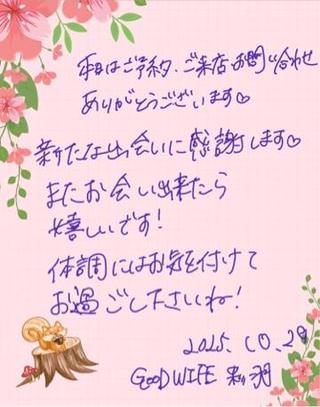 本日はご予約、ご来店、お問い合わせ
ありがとうございます♡
新たな出会いに感謝します♡
またお会い出来たら
嬉しいです!
体調にはお気を付けて
お過ごし下さいね!
2025.10.29
GOOD WIFE